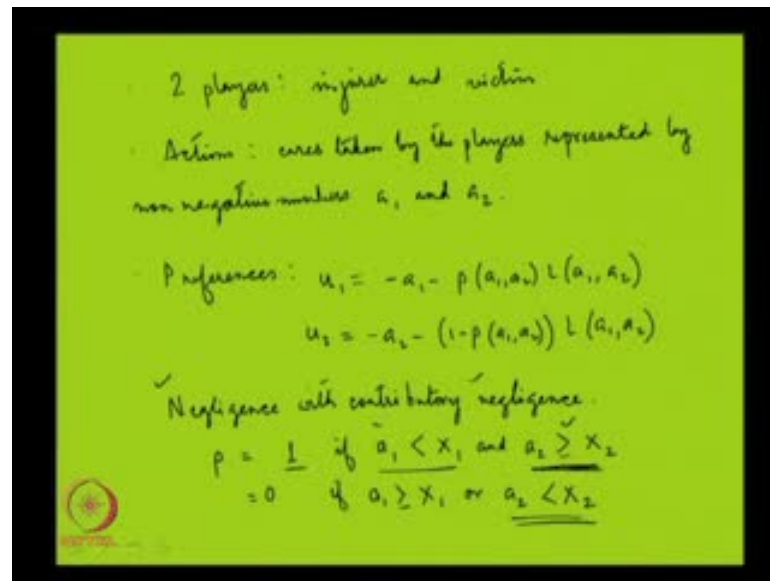 2 players: injurer and victim
Actions: cares taken by the players represented by
non negative numbers a₁ and a₂.
Preferences: u₁ = -a₁ - ρ(a₁,a₂) L(a₁,a₂)
u₂ = -a₂ - (1-ρ(a₁,a₂)) L(a₁,a₂)
Negligence with contributory negligence.
ρ = 1 if a₁ < X₁ and a₂ ≥ X₂
=0 if a₁ ≥ X₁ or a₂ < X₂
NPTEL